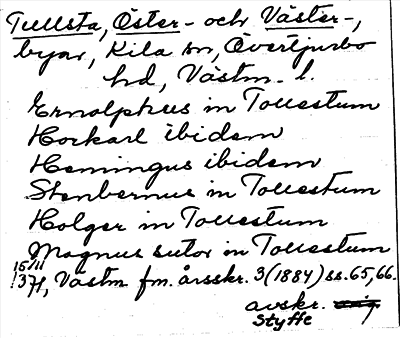 Tullsta, Öster- och Väster-,
byar, Kila sn, Övertjurbo
hd, Västm. l.
Ernolphus in Tollestum
Horkarl ibidem
Hemingus ibidem
Stenbernus in Tollestum
Holger in Tollestum
Magnus sutor in Tollestum
15/11
1371, Västm fm. årsskr. 3 (1884) ss. 65, 66.
avskr.
Styffe